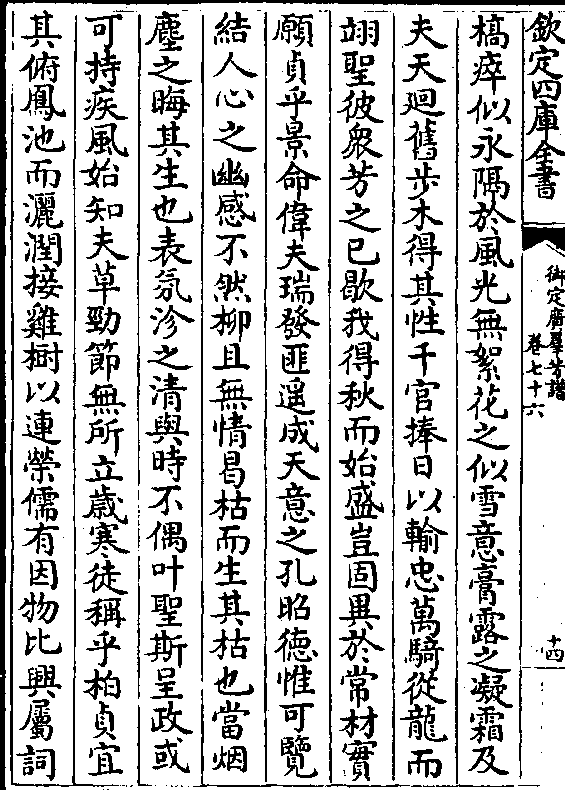 欽定四庫全書
御定廣羣芳譜
卷七十六
十四
槁瘁似永隔於風光無絮花之似雪意膏露之凝霜及
夫天迴舊步木得其性千官捧日以輸忠萬騎從龍而
翊聖彼衆芳之已歇我得秋而始盛豈固異於常材實
願貞乎景命偉夫瑞發匪遥成天意之孔昭德惟可覽
結人心之幽感不然柳且無情曷枯而生其枯也當烟
塵之晦其生也表氛沴之清與時不偶叶聖斯呈政或
可持疾風始知夫草勁節無所立歳寒徒稱乎柏貞宜
其俯鳳池而灑潤接雞樹以連榮儒有因物比興屬詞